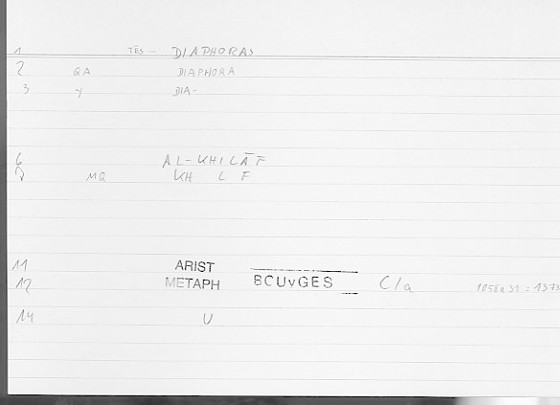 1 TĒS - DIAPHORAS
2 QA DIAPHORA
3 Y DIA-
6 AL-KHILĀF
7 MQ KH L F
11 ARIST
12 METAPH BCUvGES C/a
14 U